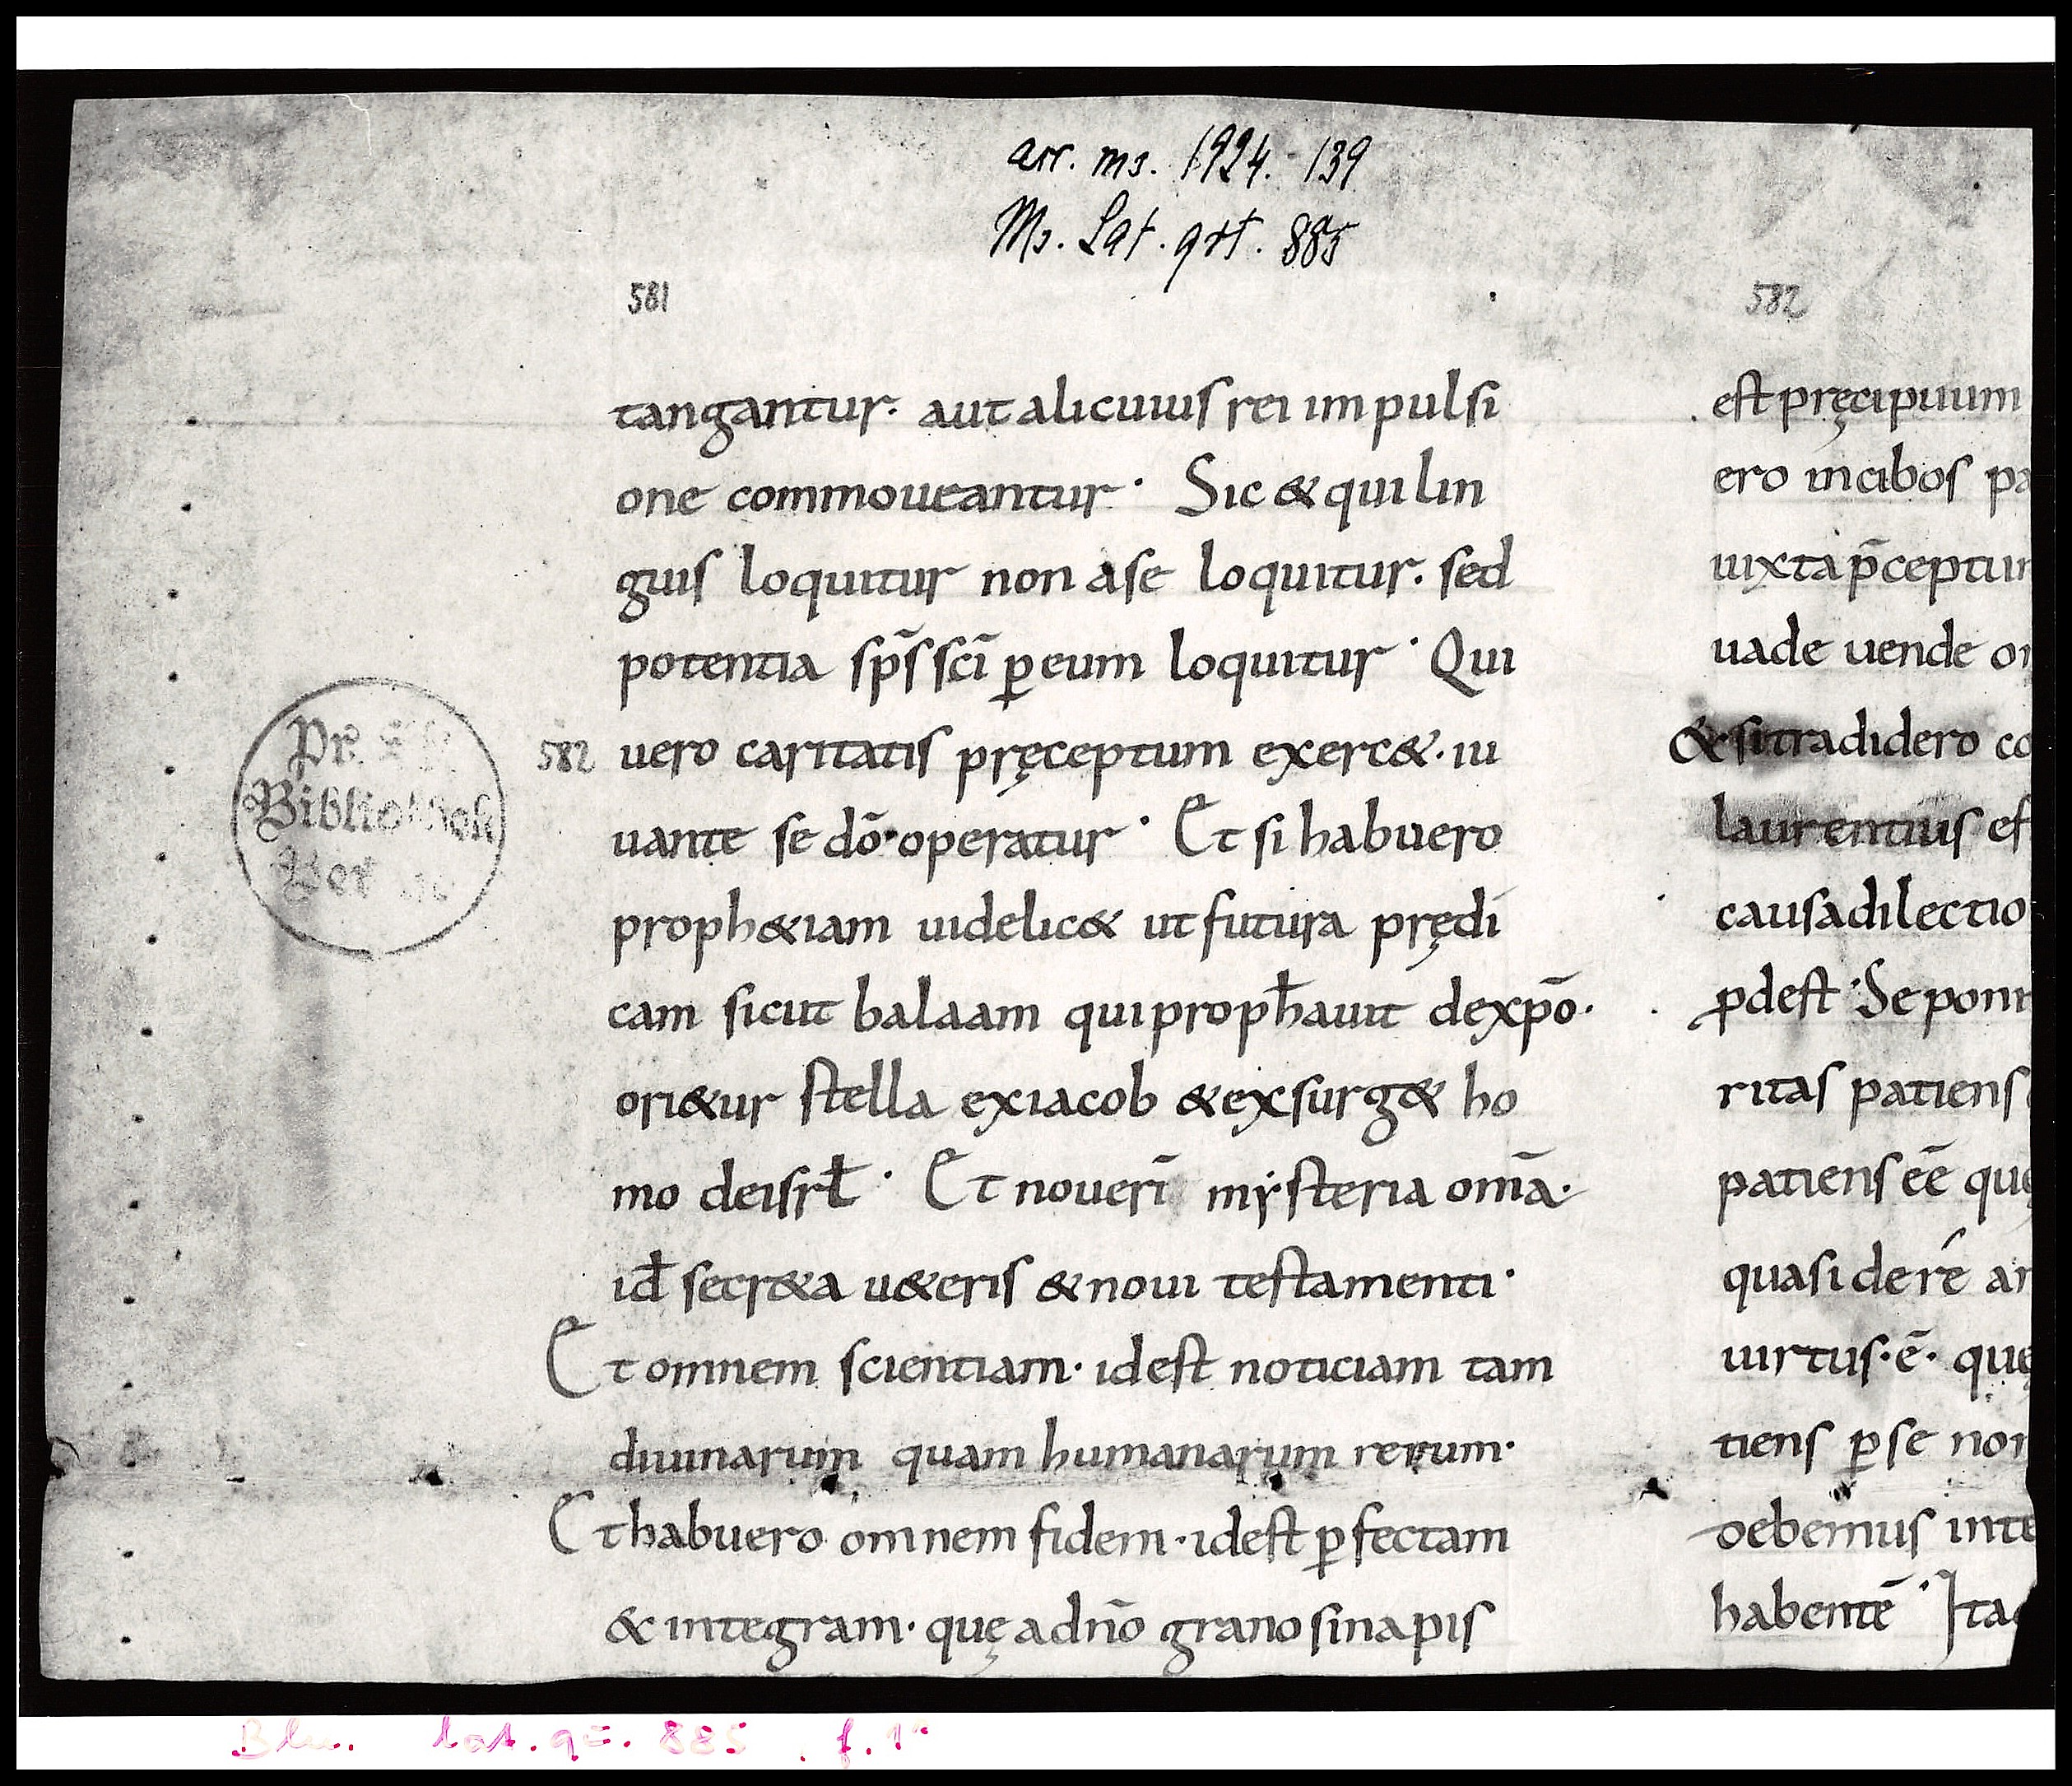 acc. ms. 1924. 139
Ms. Lat. qrt. 885
581
tangantur. aut alicuius rei impulsi
one commoueantur. Sic & qui lin
guis loquitur non a se loquitur. sed
potentia sp̄s sc̄i ꝑ eum loquitur. Qui
582 uero caritatis pręceptum exerc&. iu
uante se dō. operatur. Et si habuero
proph&iam uidelic& ut futura prędi
cam sicut balaam qui proph̄auit de xp̄o.
ori&ur stella ex iacob & exsurg& ho
mo de isrł. Et nouerī mẏsteria om̄a.
id̄ secr&a u&eris & noui testamenti.
Et omnem scientiam. id est noticiam tam
diuinarum quam humanarum rerum.
Et habuero omnem fidem. id est ꝑfectam
& integram. quę a dn̄o grano sinapis
582
est pręcipuum
ero in cibos pa
iuxta p̄ceptum
uade uende om
& si tradidero co
laurentius ef
causa dilectio
ꝓdest. Se poni
ritas patiens
patiens eē quę
quasi de rē ar
uirtus. ē. quę
tiens ꝑ se non
debemus inte
habentē. Ita
Pr.
Bibliothek
Ber
Bln. lat. q°. 885. f. 1r